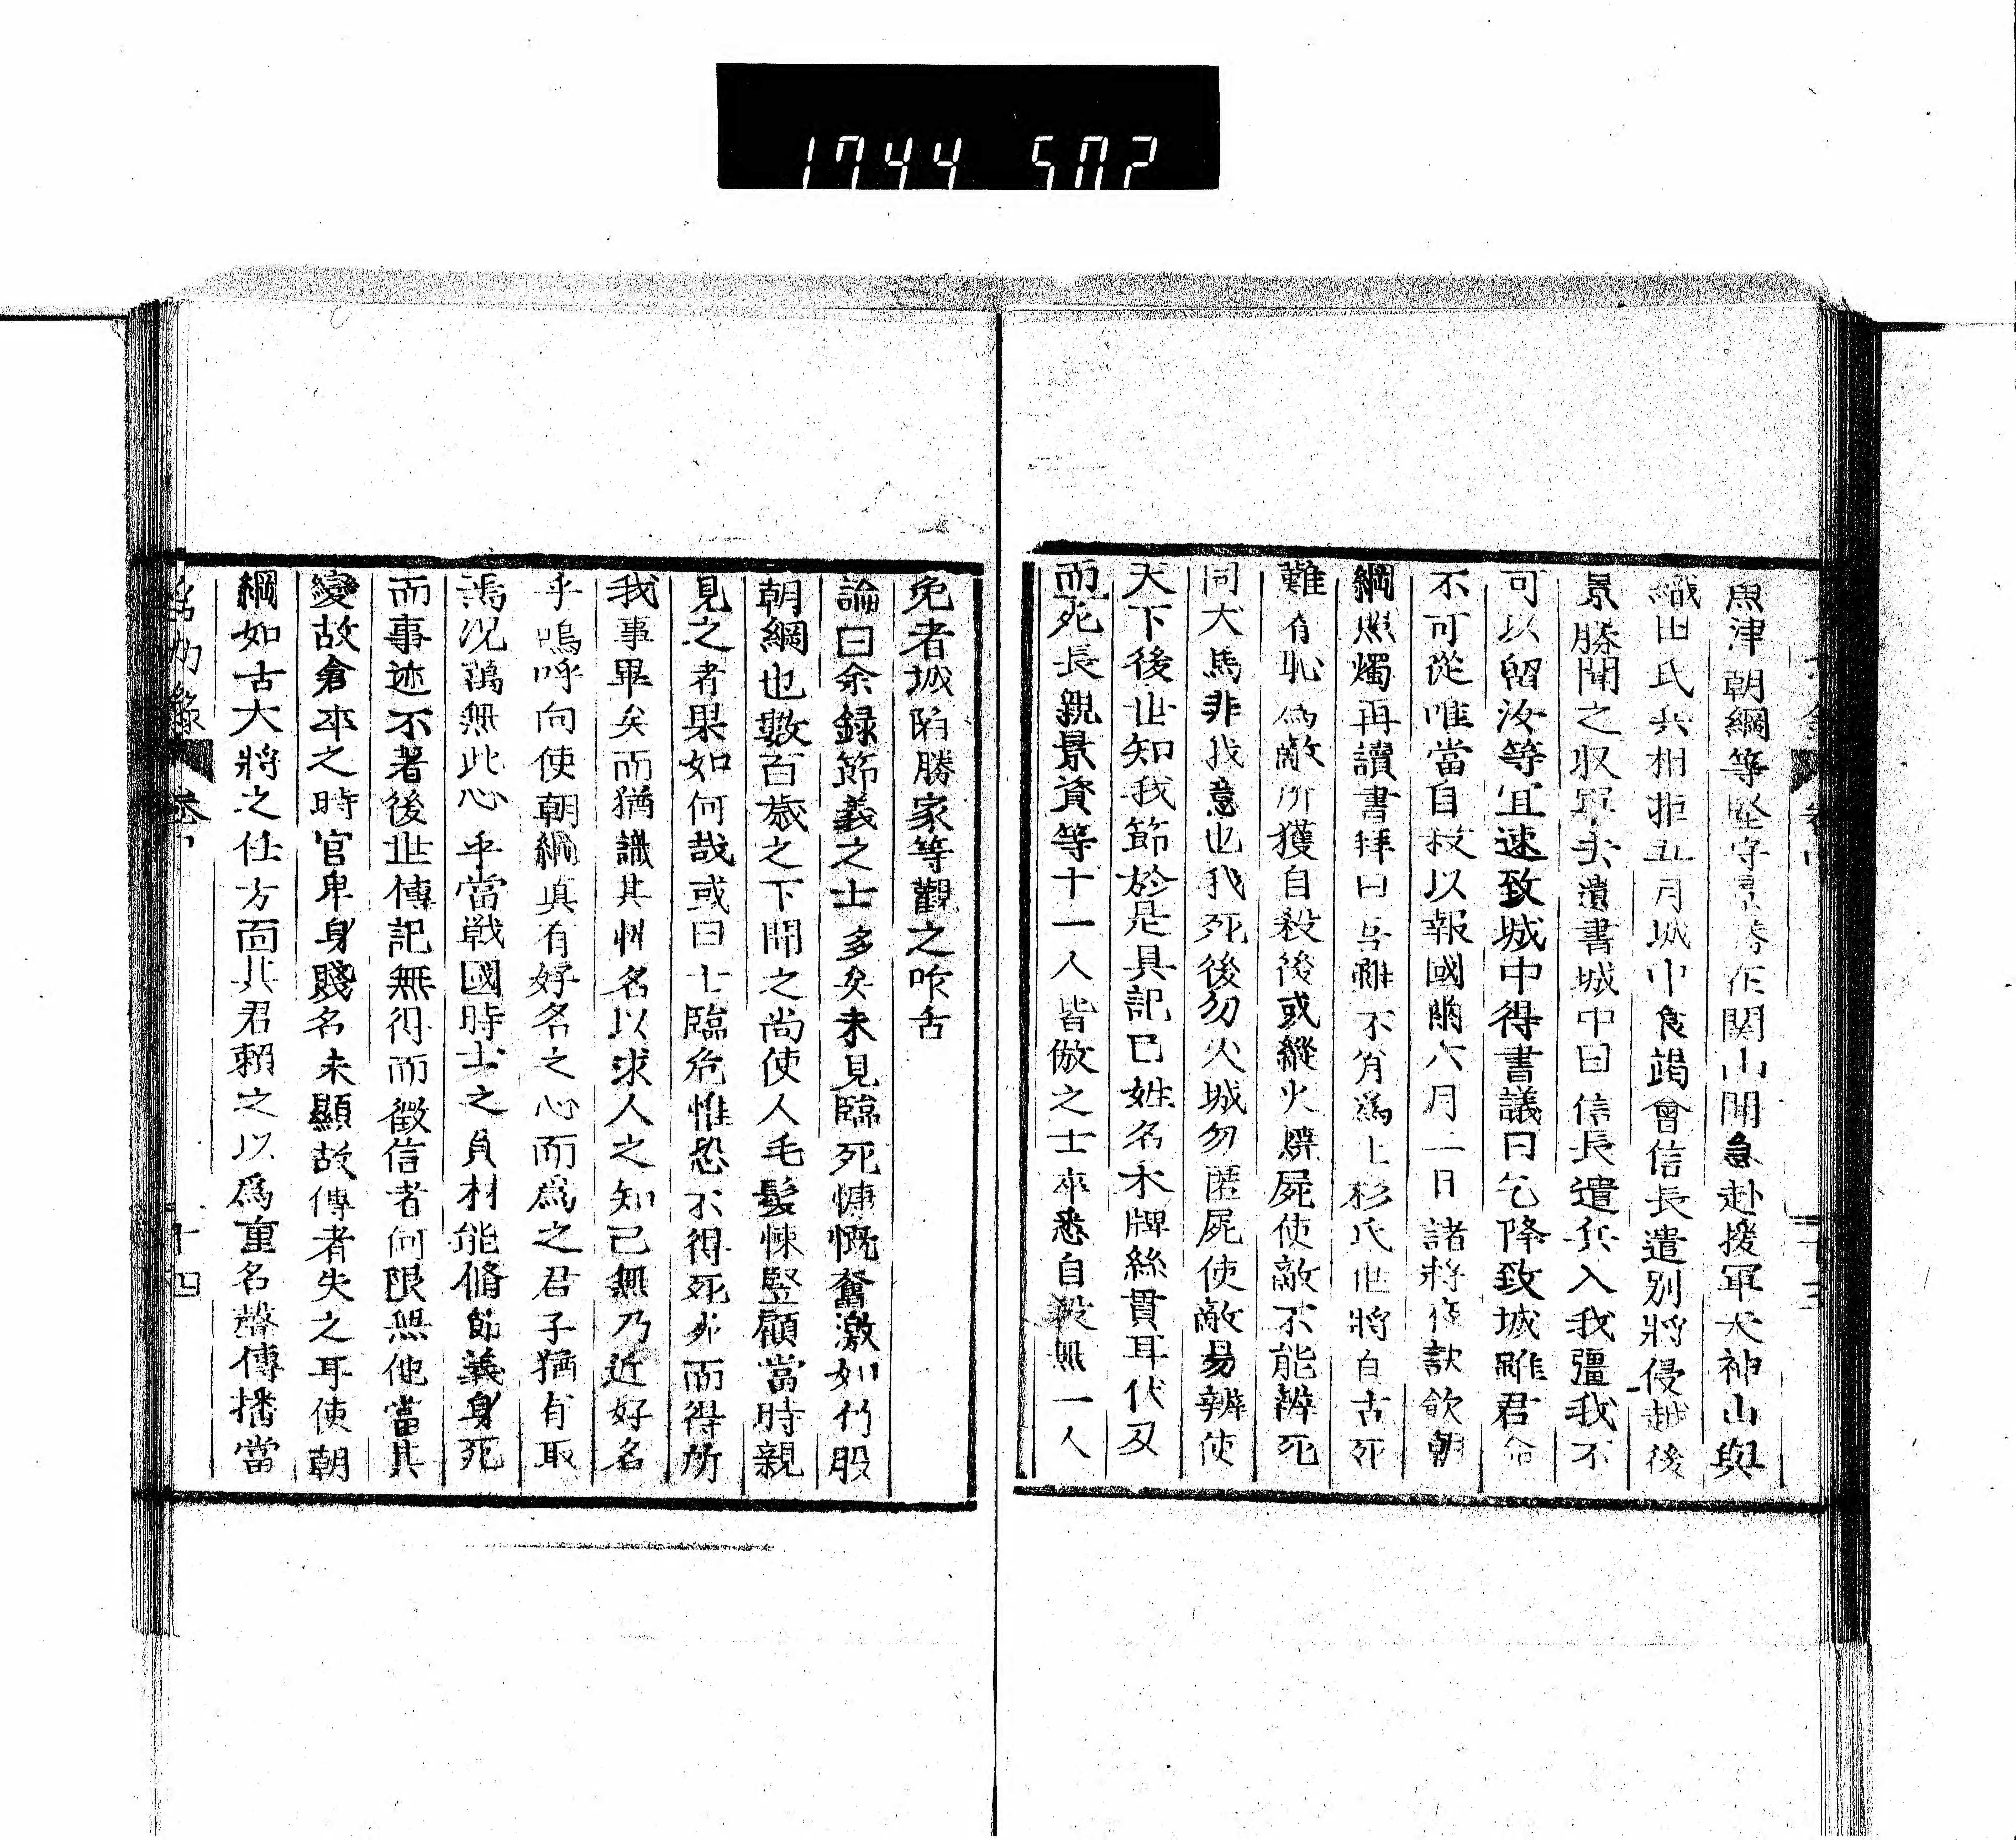 1744 502
魚津朝綱等堅守景勝在関山聞急赴援軍天神山與
織田氏兵相拒五月城中食竭會信長遣別將侵越後
景勝聞之収軍去遺書城中曰信長遣兵入我疆我不
可以留汝等宜速致城中得書議曰乞降致城雖君命
不可從唯當自殺以報國爾六月二日諸將夜訣飲朝
綱照燭再讀書拜曰吾雖不肖爲上杉氏世將自古死
難有恥爲敵所獲自殺後或縱火燒屍使敵不能辨死
同犬馬非我意也我死後勿火城勿匿屍使敵易辨使
天下後世知我節於是具記已姓名木牌絲貫耳伏刃
而死長親景資等十一人皆倣之士卒悉自殺無一人
免者城陷勝家等觀之咋舌
論曰余録節義之士多矣未見臨死慷慨奮激如竹股
朝綱也數百歳之下聞之尚使人毛髮悚竪顧當時親
見之者果如何哉或曰士臨危惟恐不得死死而得所
我事畢矣而猶識其州名以求人之知已無乃近好名
乎嗚呼向使朝綱真有好名之心而爲之君子猶有取
焉況萬無此心乎當戰國時士之負材能脩節義身死
而事迹不著後世傳記無得而徵信者何限無他當其
變故倉卒之時官卑身賤名未顯故傳者失之耳使朝
綱如古大將之任方面其君賴之以爲重名聲傳播當
十四